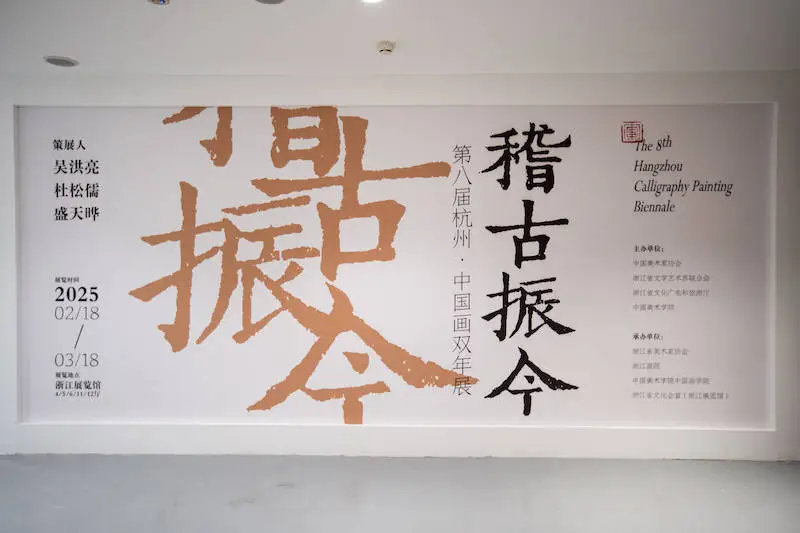 策展人
吴洪亮
杜松儒
盛天晔
展览时间
2025
02/18
/
03/18
展览地点
浙江展览馆
4/5/6/11/12厅
稽古振今
第八届杭州·中国画双年展
稽古振今
The 8th
Hangzhou
Calligraphy Painting
Biennale
主办单位：
中国美术家协会
浙江省文学艺术界联合会
浙江省文化广电和旅游厅
中国美术学院
承办单位：
浙江省美术家协会
浙江画院
中国美术学院中国画学院
浙江省文化会堂（浙江展览馆）